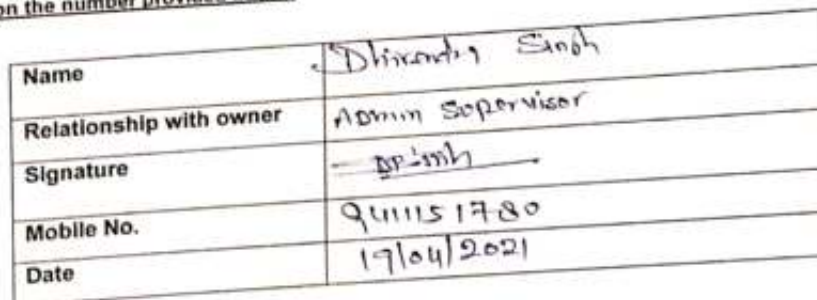 on the number provided
Name Dhirendra Singh
Relationship with owner Admin Supervisor
Signature
Mobile No. 9411151780
Date 19/04/2021